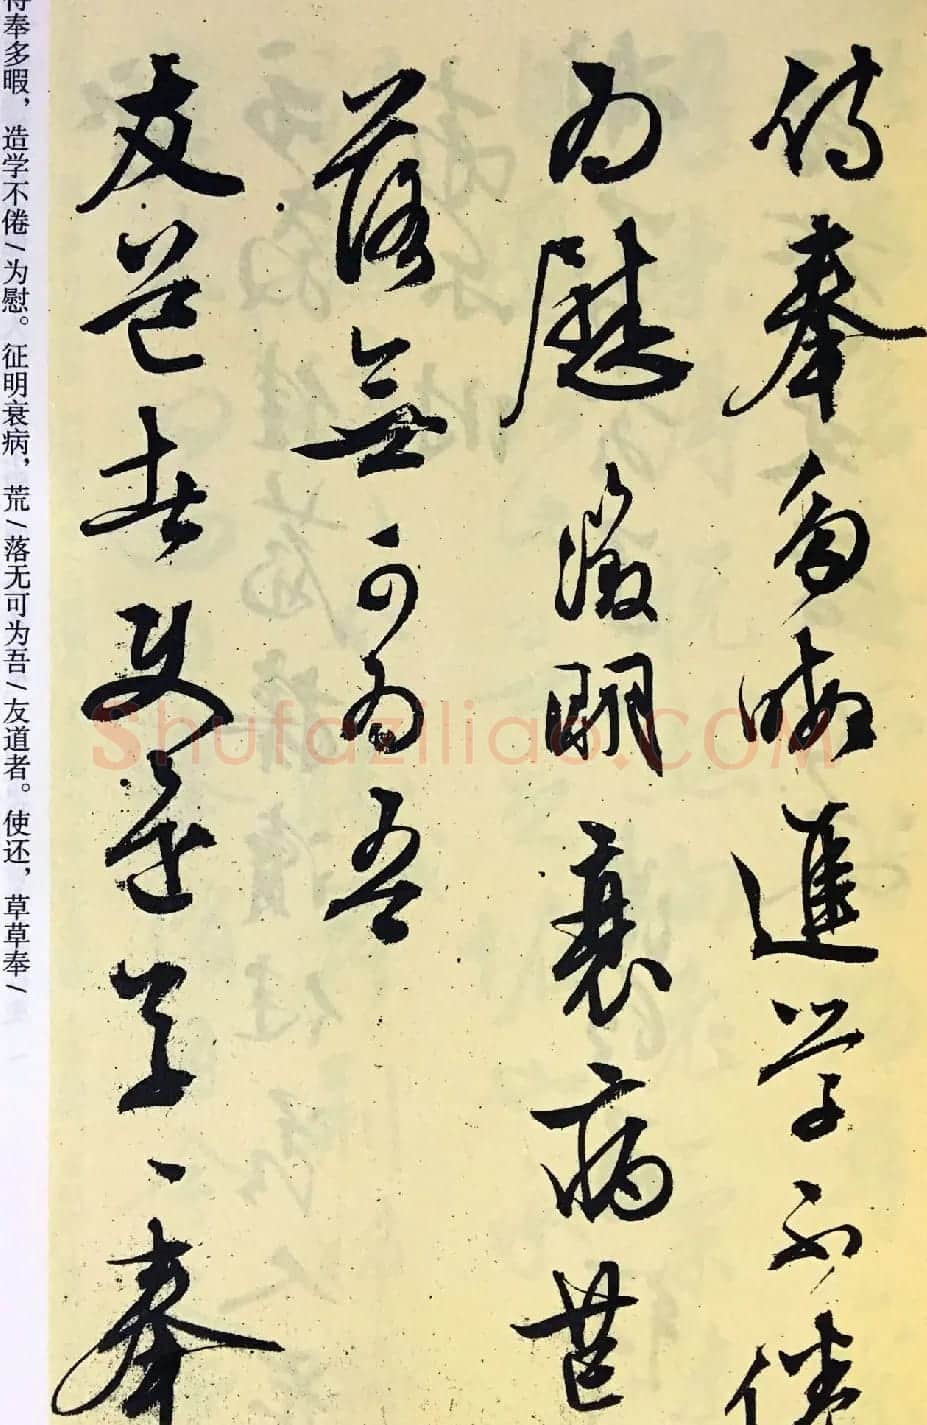 侍奉多暇進學不倦
為慰徵明衰病荒
落無可為吾
友道者使還草々奉
侍奉多暇，造学不倦/为慰。征明衰病，荒/落无可为吾/友道者。使还，草草奉/
Shufaziliao.COM